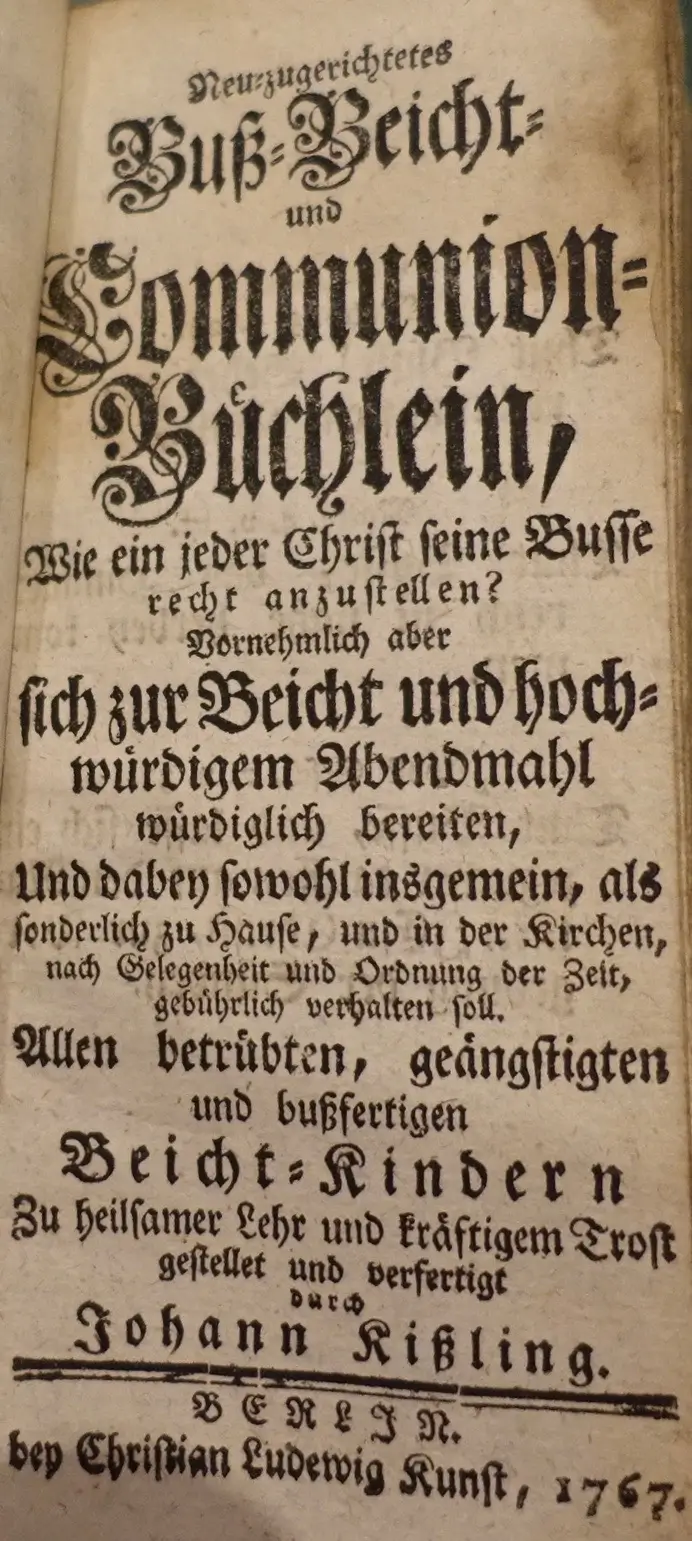 Neu-zugerichtetes
Buß-Beicht-
und
Communion-
Büchlein,
Wie ein jeder Christ seine Busse
recht anzustellen?
Vornehmlich aber
sich zur Beicht und hoch-
würdigem Abendmahl
würdiglich bereiten,
Und dabey sowohl insgemein, als
sonderlich zu Hause, und in der Kirchen,
nach Gelegenheit und Ordnung der Zeit,
gebührlich verhalten soll.
Allen betrübten, geängstigten
und bußfertigen
Beicht-Kindern
Zu heilsamer Lehr und kräftigem Trost
gestellet und verfertigt
durch
Johann Kißling.
BERLIN.
bey Christian Ludewig Kunst, 1767.